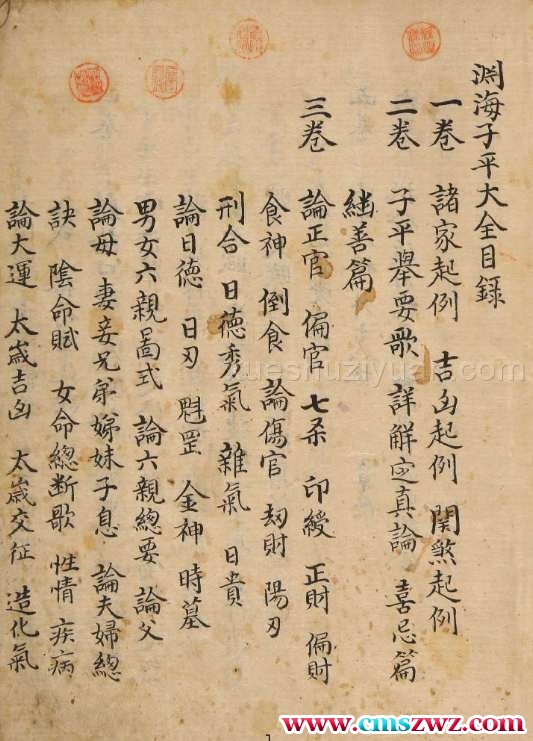 渊海子平大全目錄
一卷 諸家起例 吉凶起例 関煞起例
二卷 子平舉要歌 詳解定真論 喜忌篇
継善篇
三卷 論正官 偏官 七杀 印綬 正財 偏財
食神 倒食 論傷官 刼財 陽刃
刑合 日德秀氣 雜氣 日貴
論日德 日刃 魁罡 金神 時墓
男女六親啚式 論六親總要 論父
論母 妻妾兄弟姊妹子息 論夫婦總
訣 陰命賦 女命總断歌 性情 疾病
論大運 太歲吉凶 太歲交征 造化氣
www.cmszwz.com